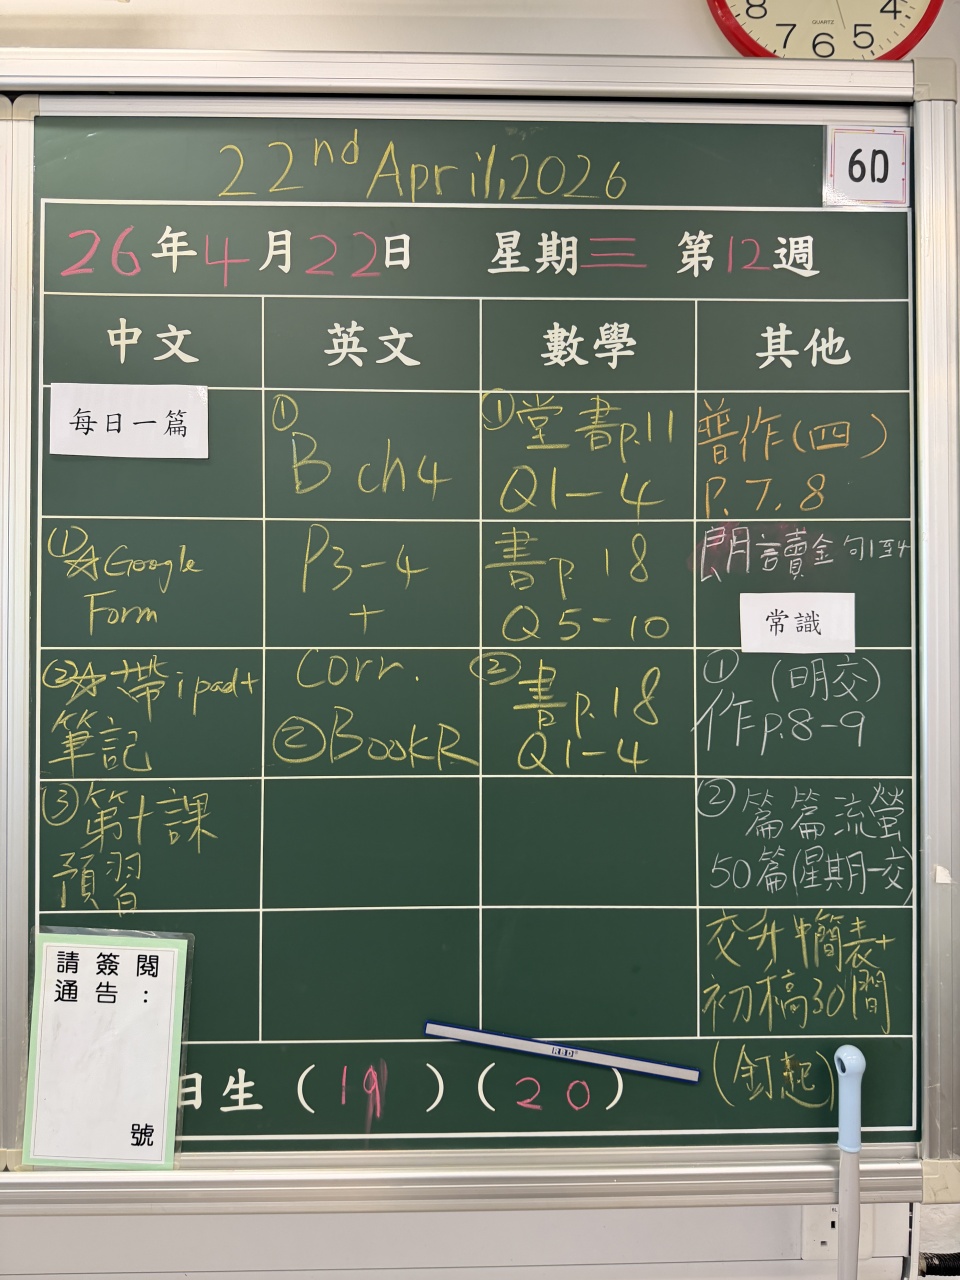 8 4
7 6 5
QUARTZ
22nd April, 2026
6D
26年4月22日 星期三 第12週
中文
每日一篇
①☆Google
Form
②☆帶ipad+
筆記
③第十課
預習
英文
①
B ch4
P3-4
+
Corr.
②BookR
數學
①堂書p.11
Q1-4
書p.18
Q5-10
②書p.18
Q1-4
其他
普作(四)
P.7,8
朗讀金句1至4
常識
①(明交)
作p.8-9
②篇篇流螢
50篇(星期一交)
交升中簡表+
初稿30間
(釘起)
請簽閱
通告:
號
日生(19)(20)
RBD